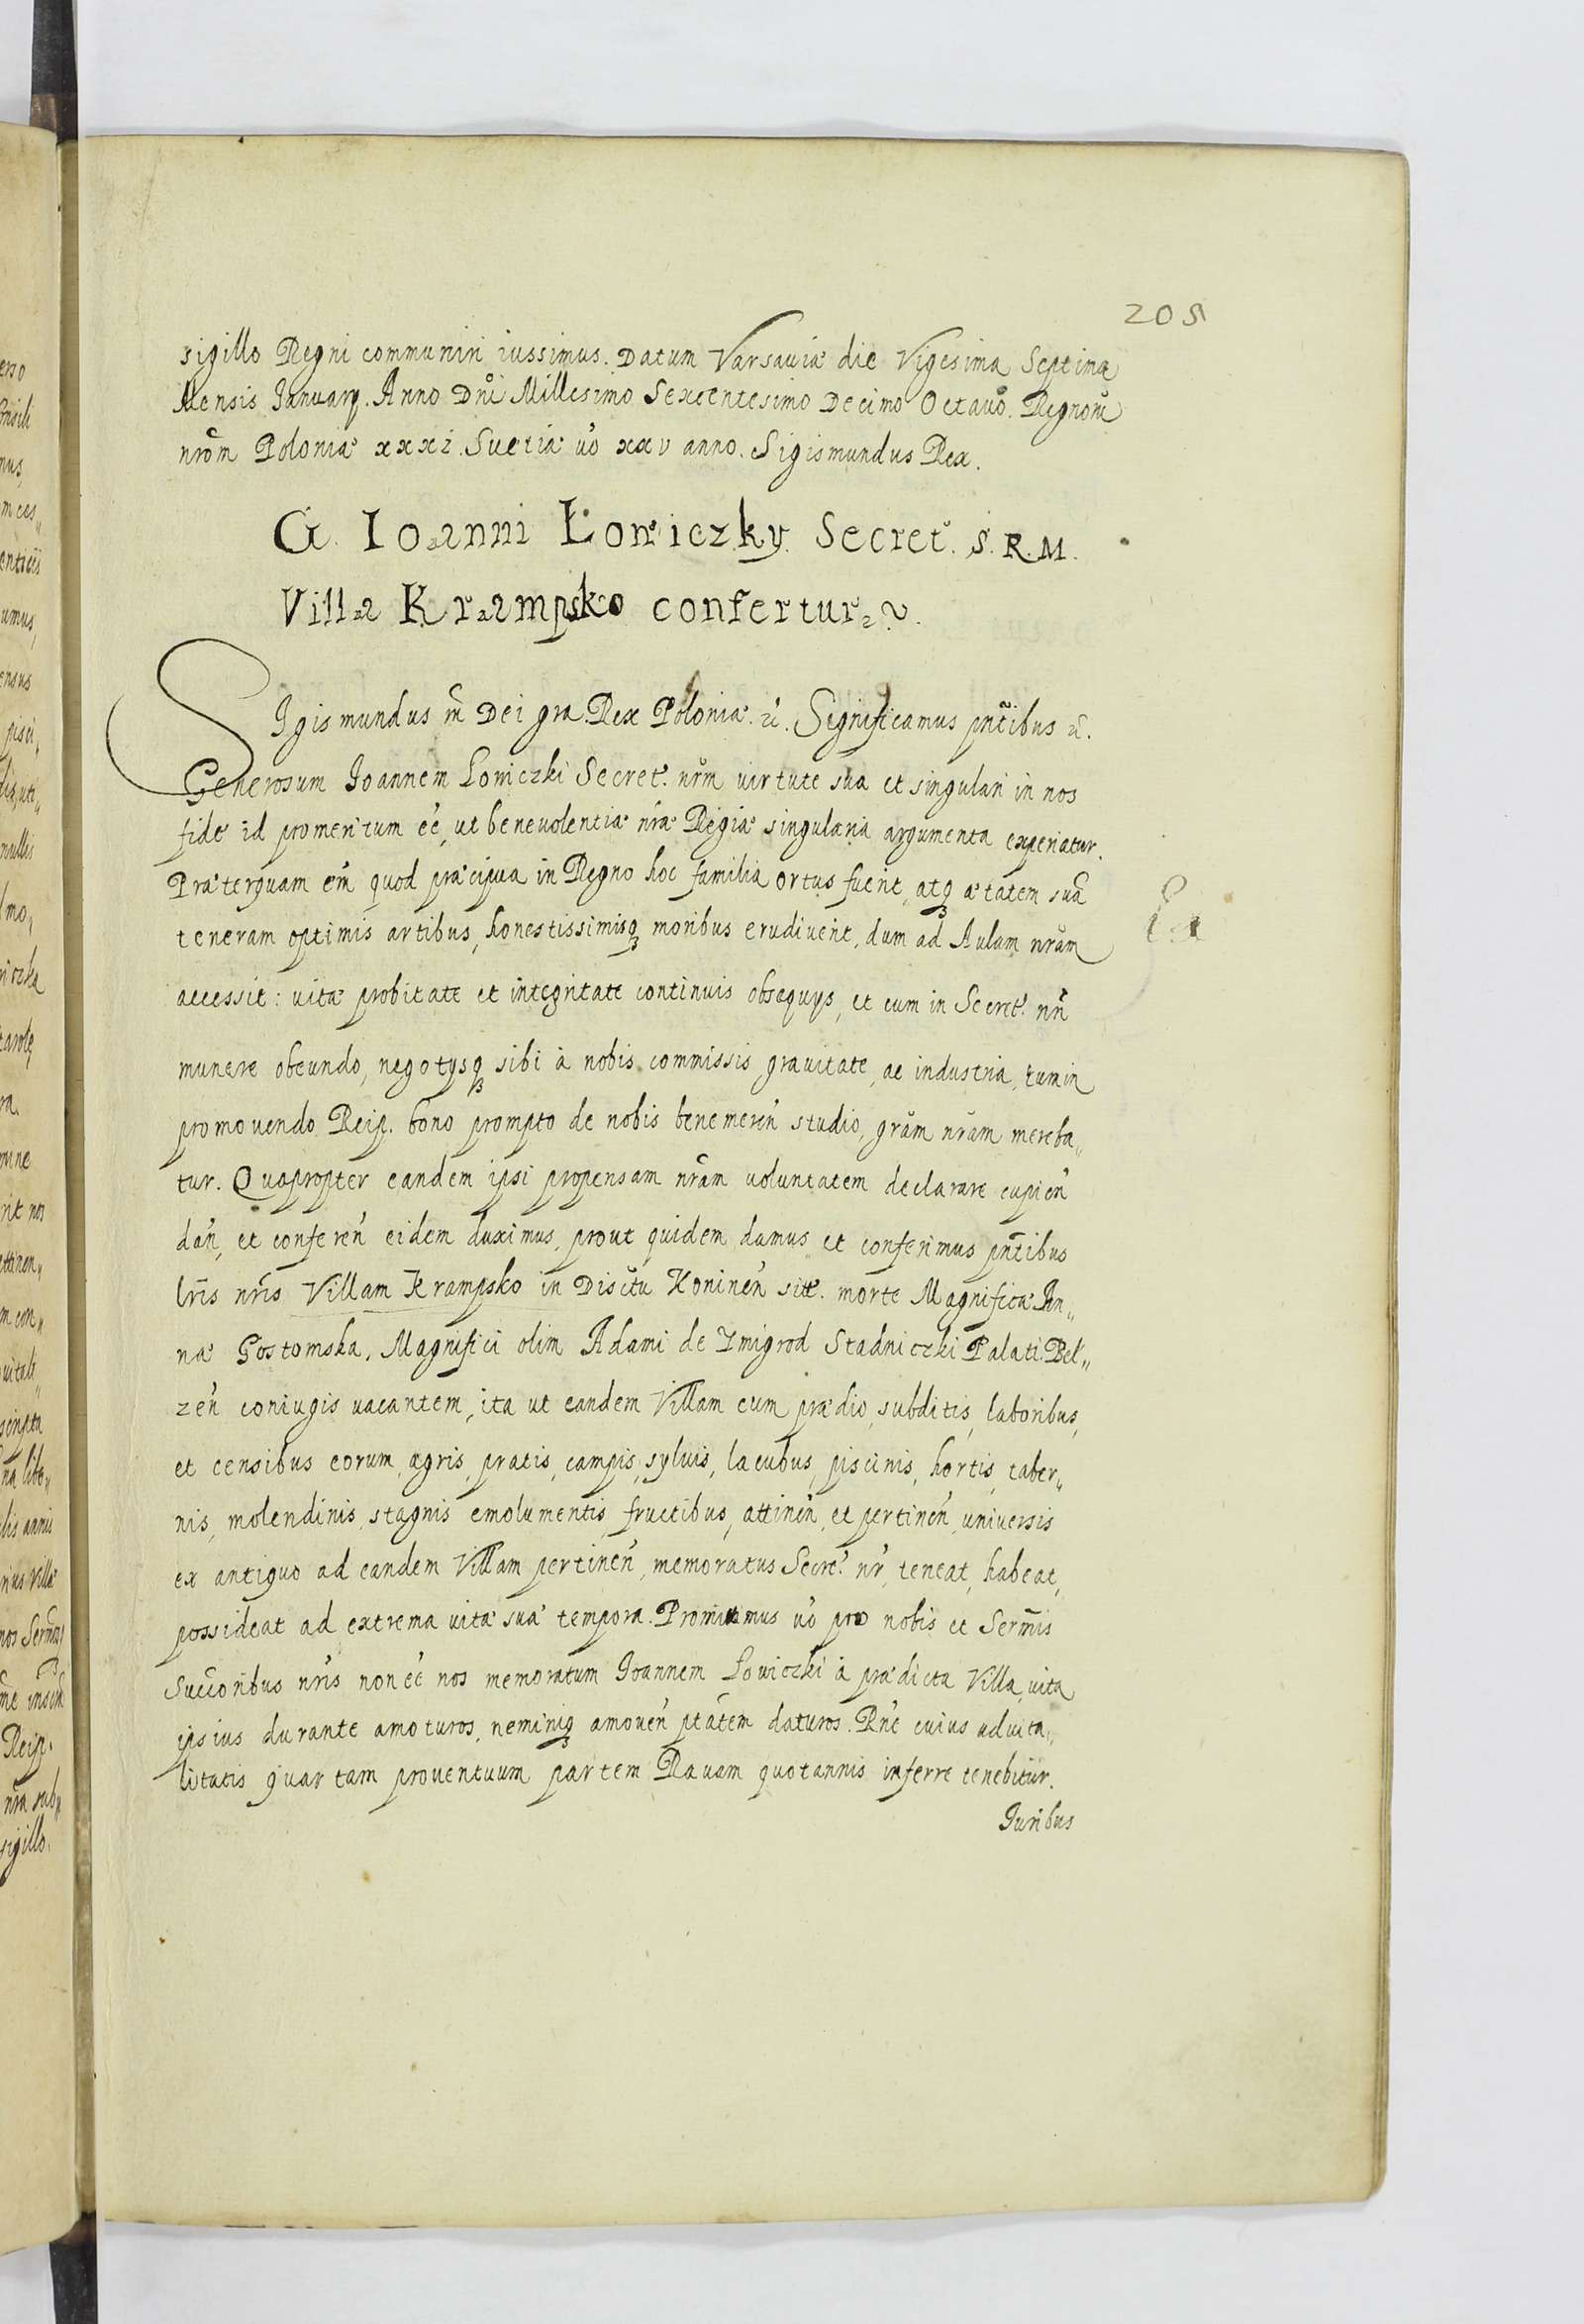 205
sigillo Regni communiri iussimus. Datum Varsauiæ die Vigesima Septima
Mensis January. Anno Dñi Millesimo Sexcentesimo Decimo Octauo. Regnorũ
nrõm Poloniæ xxxi. Suetiæ ùo xxv anno. Sigismundus Rex.
G. Ioanni Łowiczky Secret. S. R. M.
Villa Krampsko confertur.
Sigismundus III Dei gra. Rex Poloniæ. &c. Significamus pñtibus &c.
Generosum Joannem Lowiczki Secret. nrm uirtute sua et singulari in nos
fide id promeritum eẽ, ut beneuolentiæ nræ Regiæ singularia argumenta experiatur.
Præterquam em̃ quod præcipua in Regno hoc familia ortus fuerit, atq3 ætatem suã
teneram optimis artibus, honestissimisq3 moribus erudiuerit, dum ad Aulam nrãm
accessit: uitæ probitate et integritate continuis obsequys, et cum in Secret. nri
munere obeundo, negotysq3 sibi à nobis commissis grauitate, ac industria, tum in
promouendo Reip. bono prompto de nobis benemeren̄ studio, grãm nrãm mereba„
tur. Quapropter eandem ipsi propensam nrãm uoluntatem declarare cupien̄
dan̄, et conferen̄ eidem duximus, prout quidem damus et conferimus pñtibus
lr̃is nr̃is Villam Krampsko in Disctũ Koninen̄ sit. morte Magnificæ An„
næ Gostomska, Magnifici olim Adami de Zmigrod Stadniczki Palati. Bel„
zen̄ coniugis uacantem, ita ut eandem Villam cum prædio, subditis, laboribus,
et censibus eorum, agris, pratis, campis, syluis, lacubus, piscinis, hortis, taber„
nis, molendinis, stagnis emolumentis, fructibus, attinen̄, et pertinen̄, uniuersis
ex antiquo ad eandem Villam pertinen̄, memoratus Secre. nr̃, teneat, habeat,
possideat ad extrema uitæ suæ tempora. Promittimus ùo pro nobis et Serm̃is
Succ̃oribus nr̃is non eẽ nos memoratum Joannem Lowiczki à prædicta Villa, uita
ipsius durante amoturos, neminiq3 amouen̄ ptãtem daturos. Rñe cuius aduita„
litatis quartam prouentuum partem Rauam quotannis inferre tenebitur.
Juribus